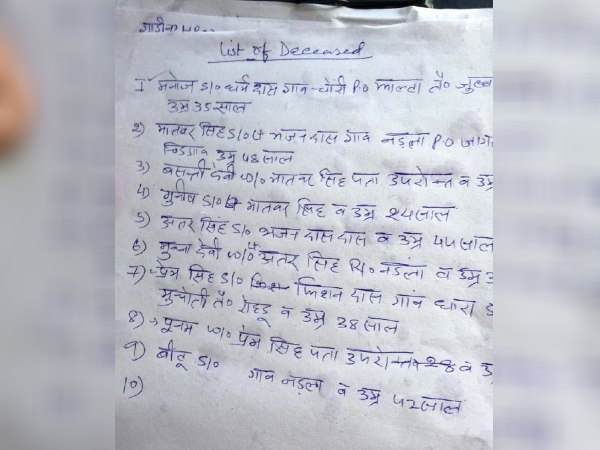 गाडी न० HP
List of Deceased
1 मनोज S/० धर्म दास गाव P.० तै०
उम्र 35 साल
2) मातवर सिंह S/० भजन दास गाव नडला P.O
चिडगाव उम्र 48 साल
3) बसन्ती देवी W/० मातवर सिंह पता उपरोक्त व उम्र
4) मुनीष S/० मातवर सिंह व उम्र 24 साल
5) अतर सिंह S/० भजन दास दास व उम्र 44 साल
6) मुन्ना देवी W/० अतर सिंह नडला व उम्र
7) प्रेम सिंह S/० किशन दास गांव धारा
तै० रोहडू व उम्र 38 साल
8) पूनम W/० प्रेम सिंह पता उपरोक्त 28 व उ
9) बीटू S/० गाव नडला व उम्र 42 साल
10)